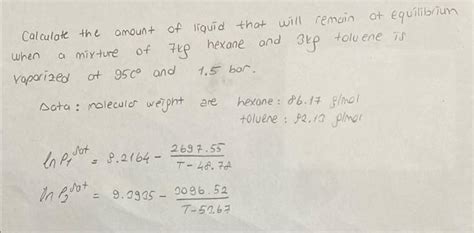 Calculate the amount of liquid that will remain at equilibrium
when a mixture of 7kg hexane and 3kg toluene is
vaporized at 95C° and 1.5 bar.
Data: molecular weight are hexane: 86.17 g/mol
toluene: 92.13 g/mol
ln P₁^sat = 9.2164 - 2697.55 / T-48.78
ln P₂^sat = 9.3935 - 3096.52 / T-53.67